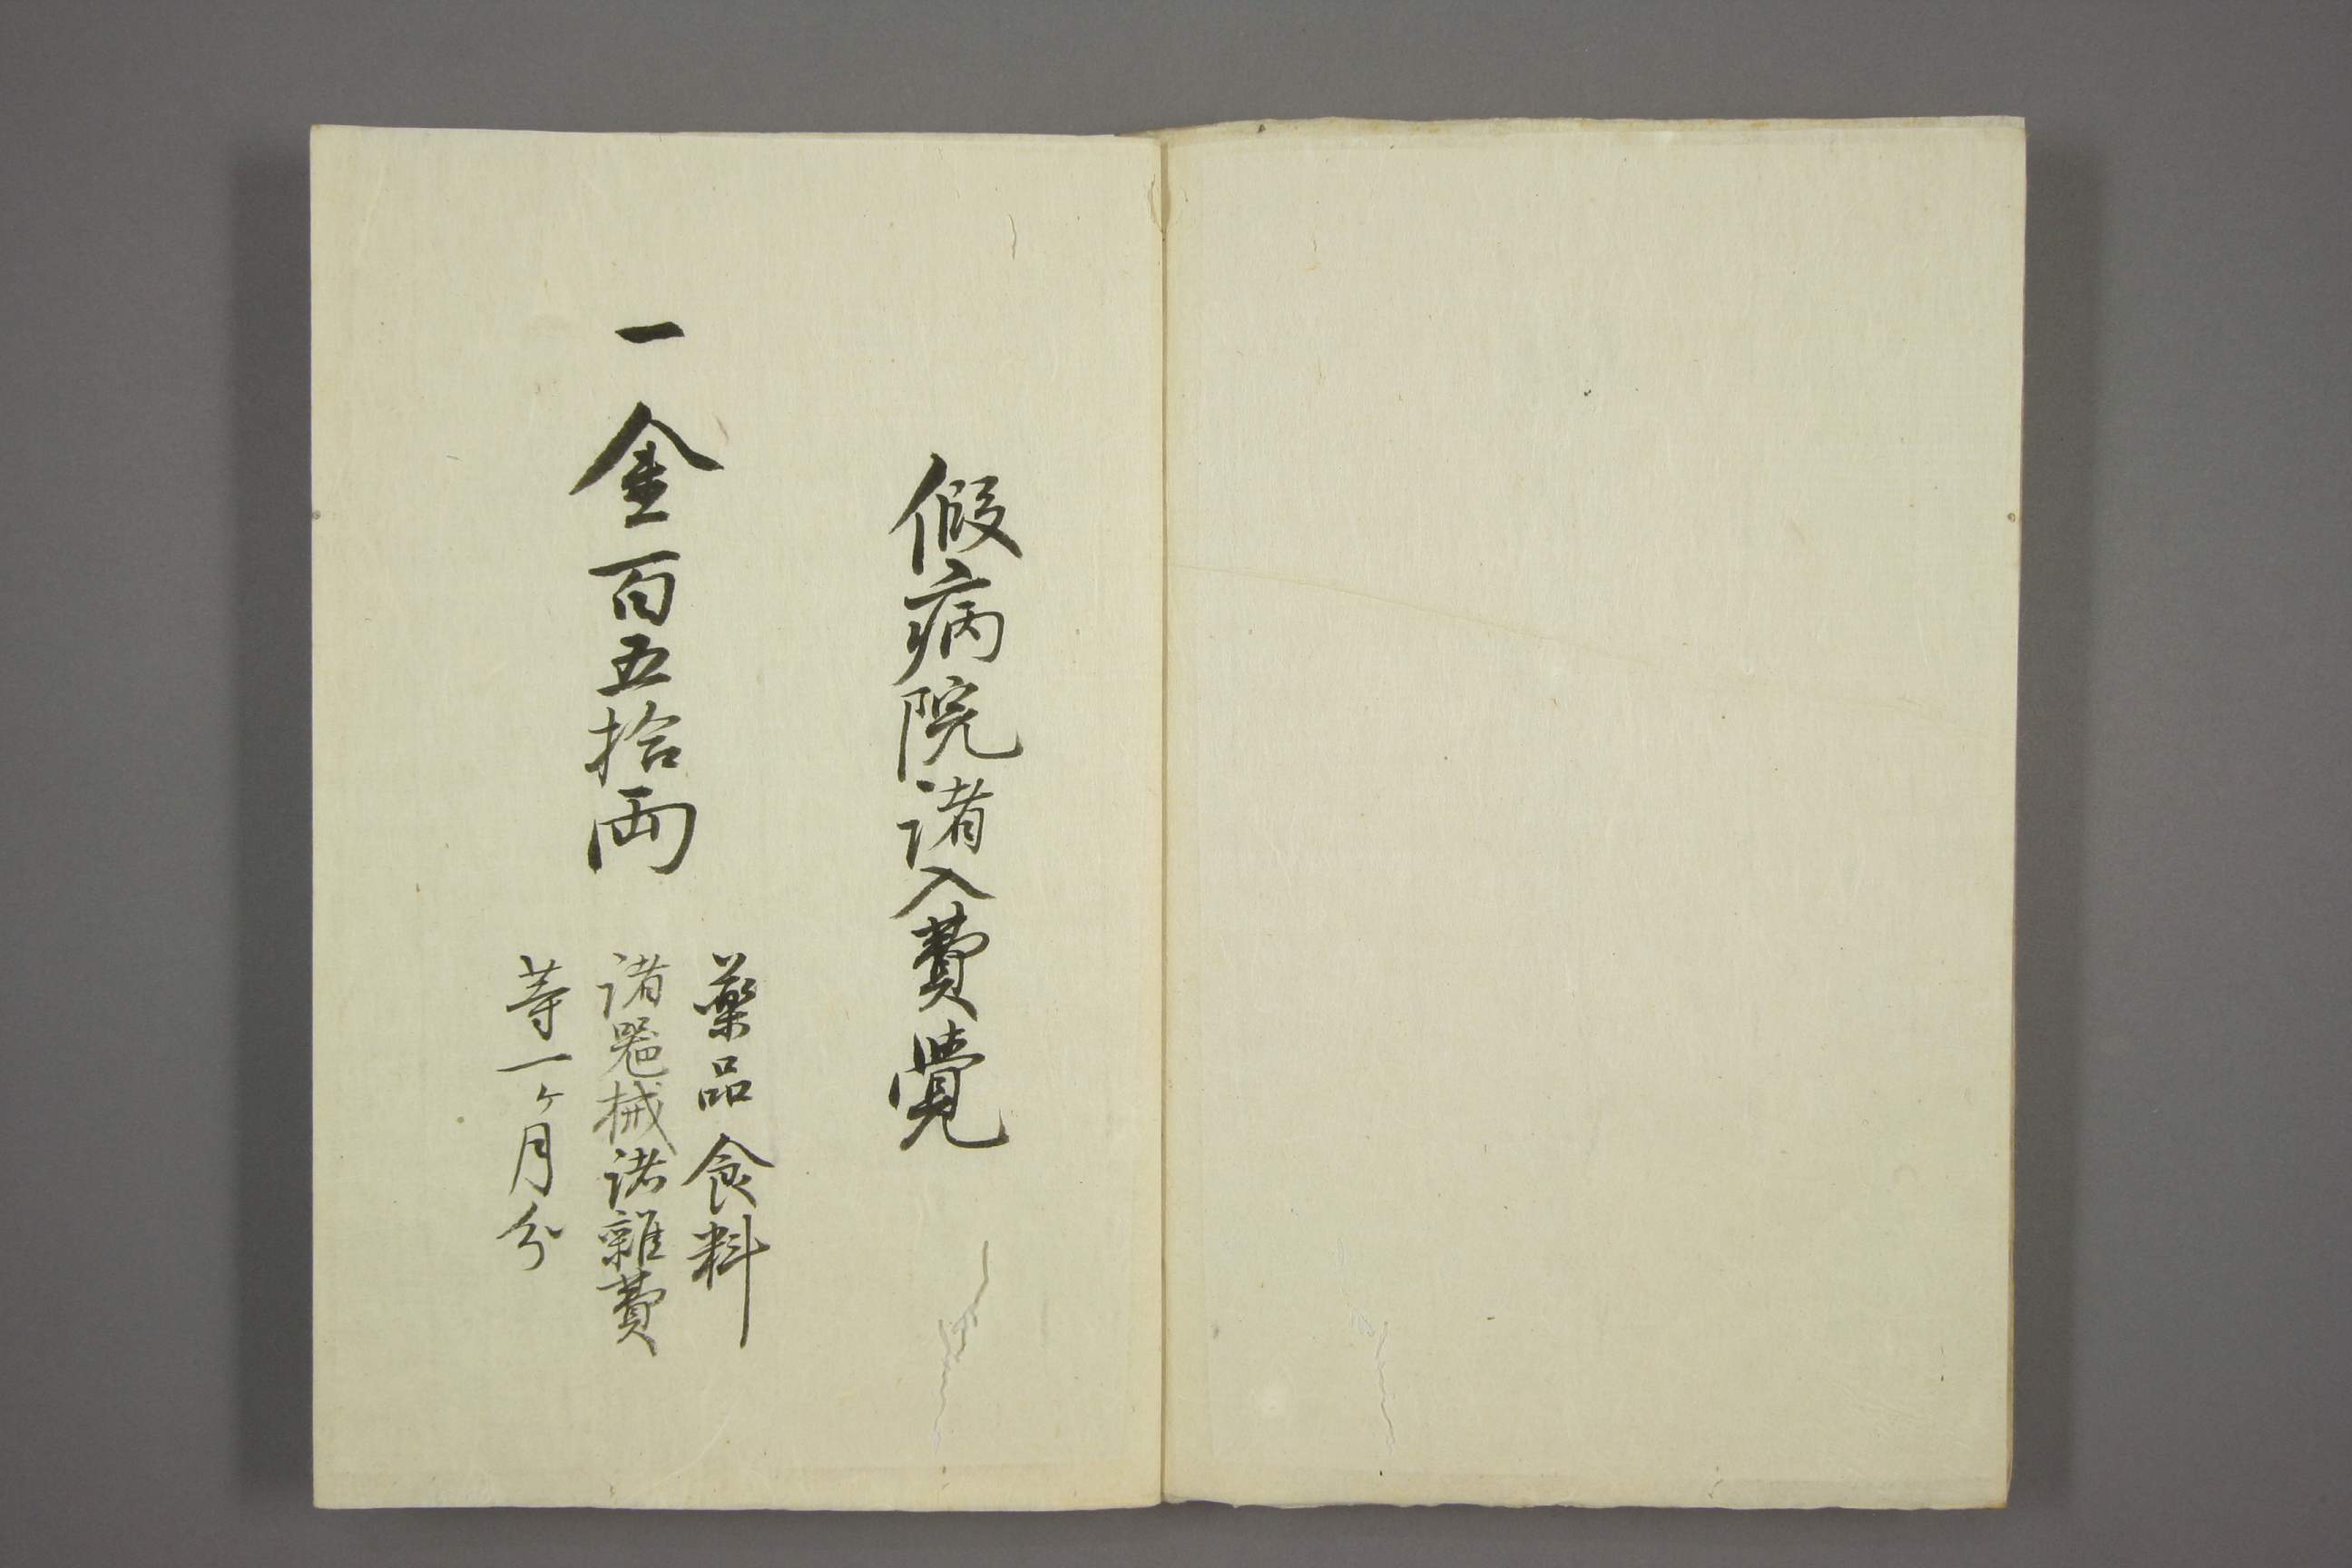 假病院諸入費覚
一金百五拾両
薬品食料
諸器械諸雜費
等一ヶ月分